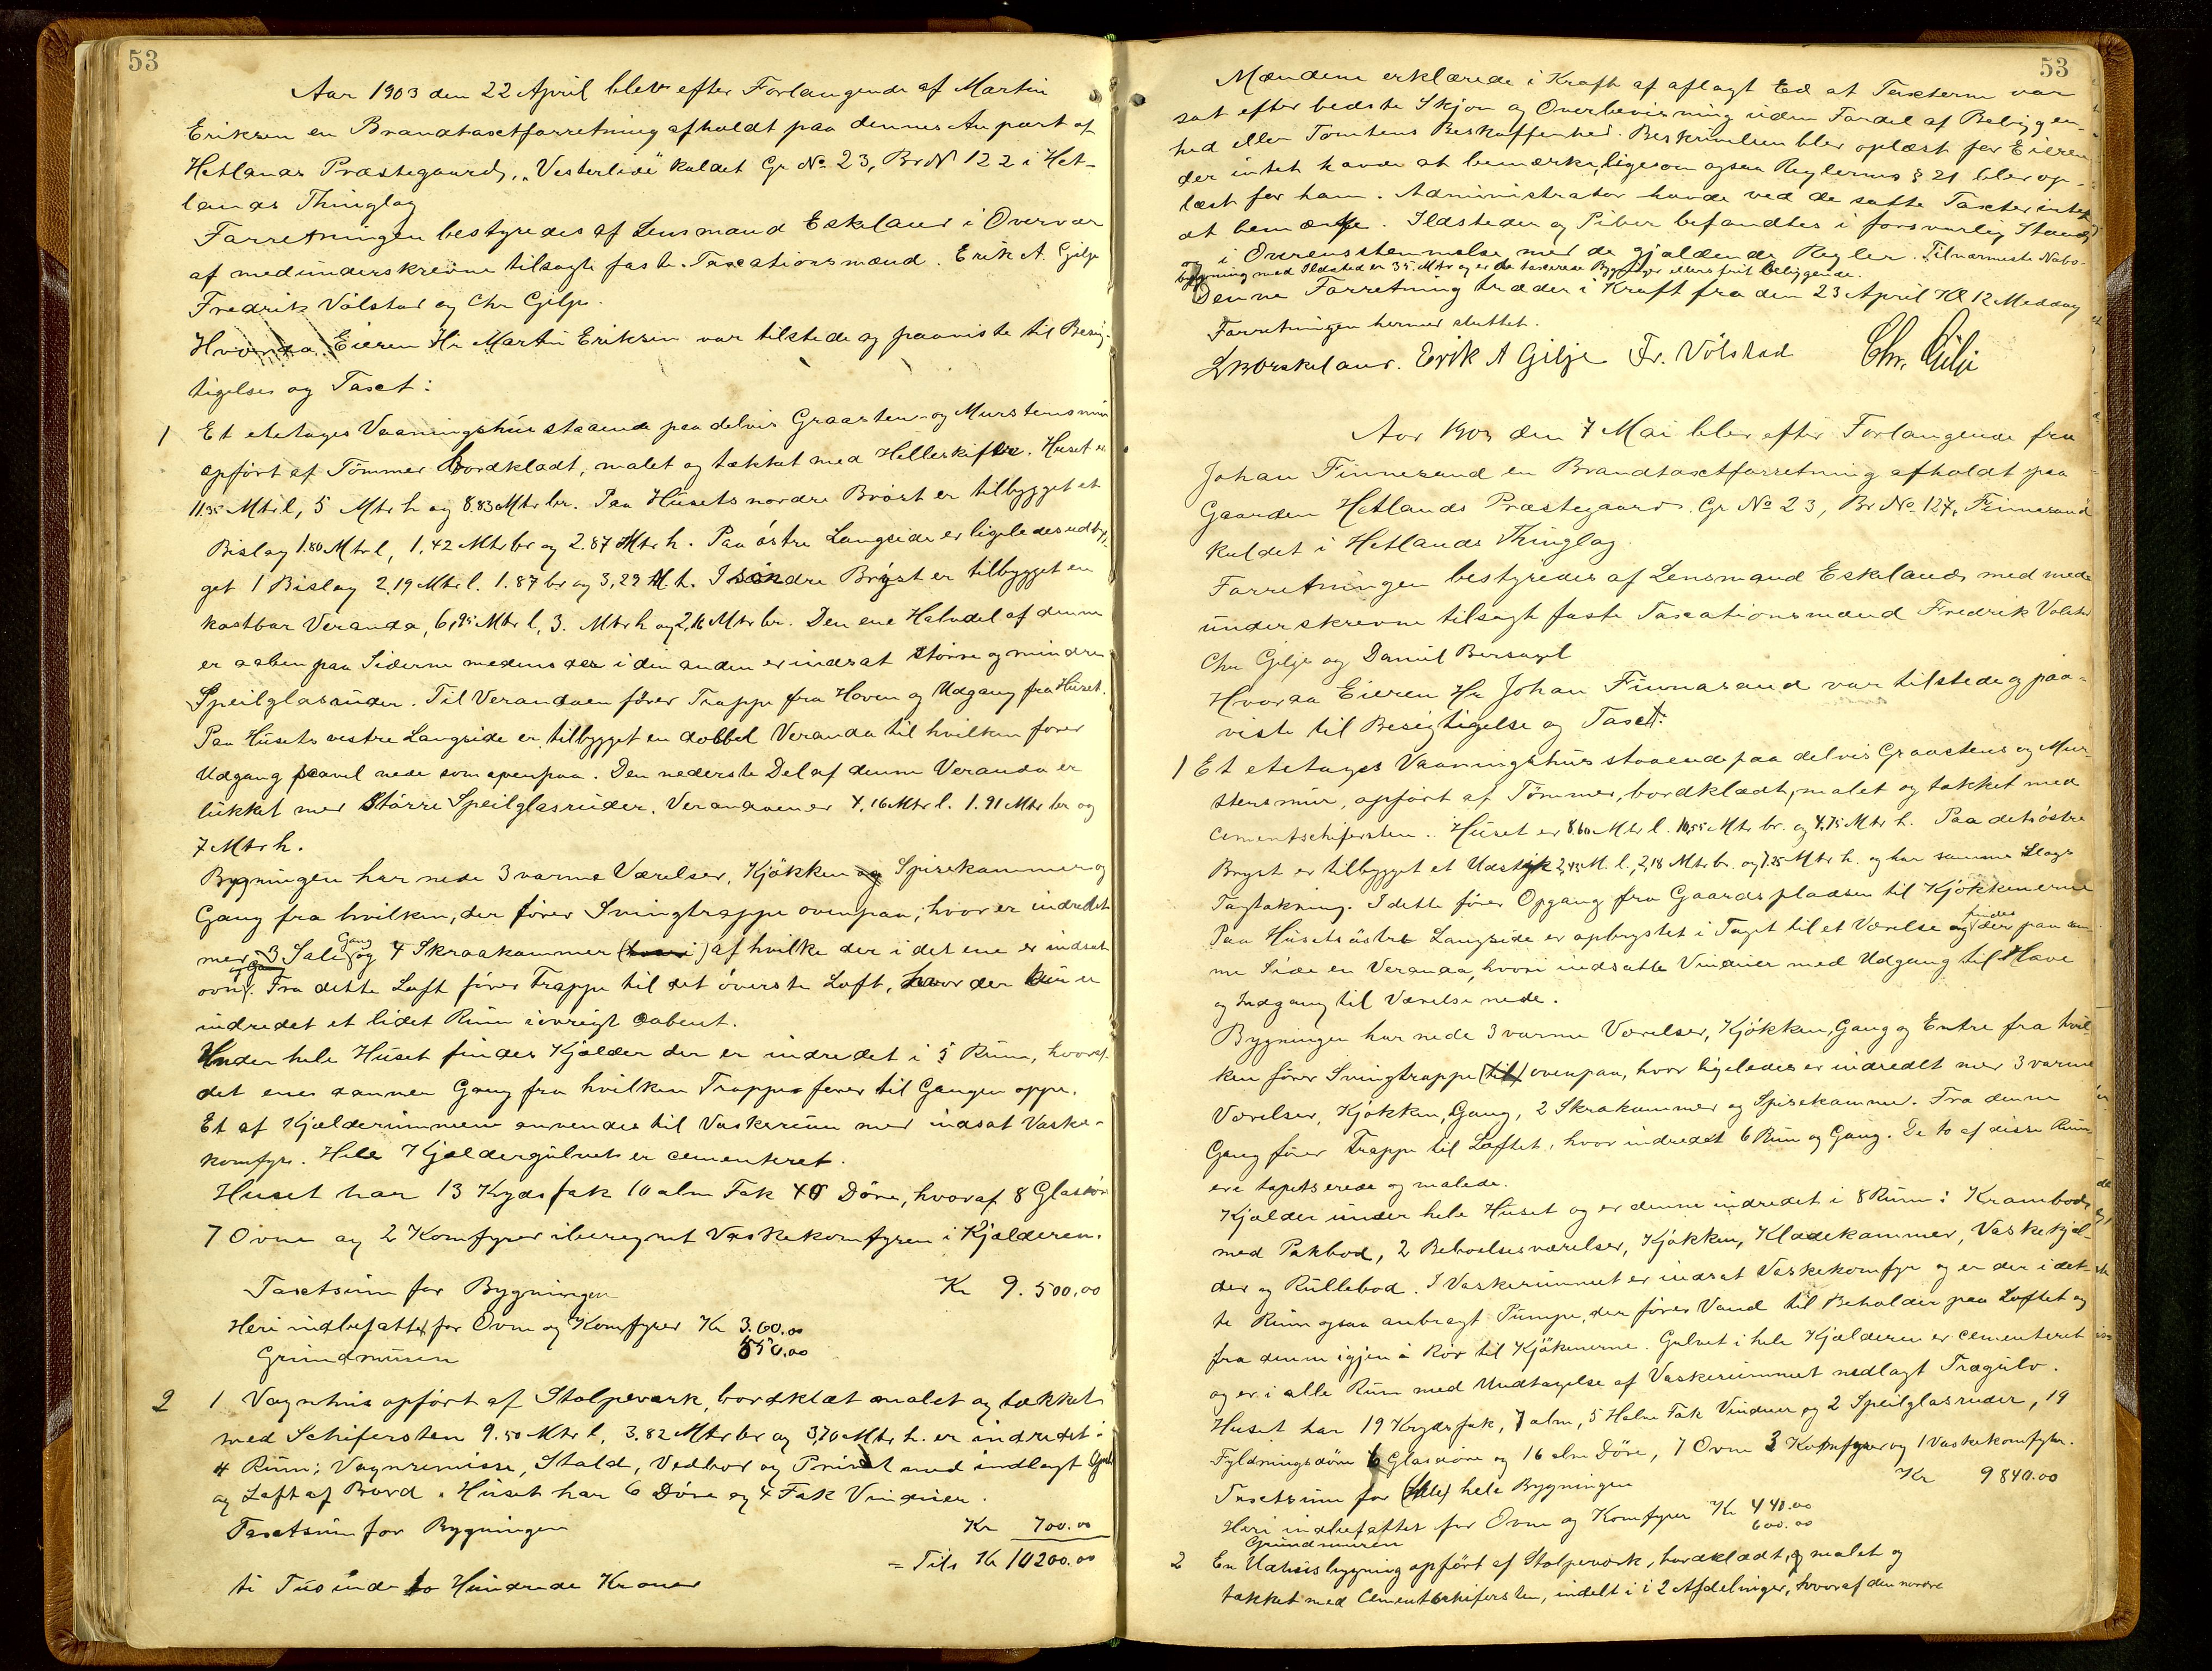 53
Aar 1903 den 22 April blev efter Forlangende af Martin
Eriksen en Brandtaxtforretning afholdt paa dennes Anpart af
Hetlands Præstegaard, "Vesterlide" kaldet Gr No 23, BrN 122 i Het-
lands Thinglag
Forretningen bestyredes af Lensmand Eskeland i Overvær
af medunderskrevne tilsagte faste Taxationsmænd. Erik A. Gilje
Fredrik Vólstad og Chr Gilje.
Hvorda Eieren Hr Martin Eriksen var tilstede og paaviste til Besig-
tigelse og Taxt:
1 Et etetages Vaaningshus staaende paa delvis Graastens- og Murstensmur
opfört af Tömmer bordklædt, malet og tækket med Helleskifer. Huset er
11.35 Mtr l, 5 Mtr h og 8.83 Mtr br. Paa Husets nordre Bröst er tilbygget et
Bislag 1.80 Mtr l, 1.42 Mtr br og 2.87 Mtr h. Paa östre Langside er ligeledes udbyg-
get 1 Bislag 2.19 Mtr l. 1.87 br og 3,29 M. h. I söndre Bryst er tilbygget en
kostbar Veranda, 6,95 Mtr l, 3. Mtr h og 2,16 Mtr br. Den ene Halvdel af denne
er aaben paa Siderne medens der i den anden er indsat större og mindre
Speilglasruder. Til Verandaen förer Trappe fra Haven og Udgang fra Huset.
Paa Husets vestre Langside er tilbygget en dobbel Veranda til hvilken förer
Udgang saavel nede som ovenpaa. Den nederste Del af denne Veranda er
lukket med Större Speilglasruder. Verandaen er 4.16 Mtr l. 1.91 Mtr br og
7 Mtr h.
Bygningen har nede 3 varme Værelser, Kjökken og Spisekammer og
Gang fra hvilken, der förer Svingtrappe ovenpaa, hvor er indredet
med 3 Sale Gang og 4 Skraakammer af hvilke der i det ene er indsat
ovn. Fra dette Loft förer Trappe til det överste Loft, hvor der kun er
indredet et lidet Rum iövrigt aabent.
Under hele Huset findes Kjælder der er indredet i 5 Rum, hvoraf
det ene danner Gang fra hvilken Trappe förer til Gangen oppe.
Et af Kjælderrummene anvendes til Vaskerum med indsat Vaske-
komfyr. Hele Kjældergulvet er cementeret.
Huset har 13 Krydsfak 10 alm Fak 40 Döre, hvoraf 8 Glasdör
7 Ovne og 2 Komfyrer iberegnet Vaskekomfyren i Kjælderen.
Taxtsum for Bygningen Kr 9.500.00
Heri indbefattet for Ovne og Komfyrer Kr 360.00
Grundmuren 550.00
2 1 Vognhus opfört af Stolpeværk, bordklæt malet og tækket
med Schifersten 9.50 Mtr l, 3.82 Mtr br og 3,70 Mtr h. er indredet i
4 Rum; Vognremisse, Stald, Vedbod og Privet med indlagt Gulv
og Loft af Bord. Huset har 6 Döre og 4 Fak Vinduer.
Taxtsum for Bygningen Kr 700.00
= Tils Kr 10200.00
ti Tusinde to Hundrede Kroner
53
Mændene erklærede i Kraft af aflagt Ed at Taxterne var
sat efter bedste Skjøn og Overbevisning uden Fordel af Beliggen-
hed eller Tomtens Beskaffenhed. Beskrivelsen blev oplæst for Eieren
der intet havde at bemærke, ligesom ogsaa Reglernes § 21 blev op-
læst for ham. Administrator havde ved de satte Taxter intet
at bemærke. Ildsteder og Piber befandtes i forsvarlig Stand
og i Overensstemmelse med de gjældende Regler. Til nærmeste Nabo-
bygning med Ildsted er 35 Mtr og er de taxerede Bygninger ellers frit beliggende.
Denne Forretning træder i Kraft fra den 23 April Kl 12 Middag
Forretningen hermed sluttet.
Erik A Gilje Fr. Vólstad Chr. Gilje
Aar 1903 den 7 Mai blev efter Forlangende fra
Johan Finnesand en Brandtaxtforretning afholdt paa
Gaarden Hetlands Præstegaard. Gr No 23, Br No 127, Finnesand
kaldet i Hetlands Thinglag.
Forretningen bestyredes af Lensmand Eskeland med med-
underskrevne tilsagte faste Taxationsmænd Fredrik Volstad
Chr Gilje og Daniel Bersagel
Hvorda Eieren Hr Johan Finnesand var tilstede og paa-
viste til Besigtigelse og Taxt:
1 Et etetages Vaaningshus staaende paa delvis Graastens og Mur-
stensmur, opfört af Tömmer, bordklædt, malet og tækket med
Cementschifersten. Huset er 8.60 Mtr l. 10,55 Mtr br. og 4,75 Mtr h. Paa det östre
Bryst er tilbygget et Udstik 2,43 M. l., 2,18 Mtr br. og 7.25 Mtr h. og har samme Slags
Tagtækning. I dette förer Opgang fra Gaardspladsen til Kjökkenerne
Paa Husets östre Langside er opbrystet i Taget til et Værelse og findes der paa sam-
me Side en Veranda, hvori indsatte Vinduer med Udgang til Have
og Indgang til Værelse nede.
Bygningen har nede 3 varme Værelser, Kjökken, Gang og Entre fra hvil-
ken förer Svingtrappe (til) ovenpaa, hvor ligeledes er indredet med 3 varme
Værelser, Kjökken, Gang, 2 Skrakammer og Spisekammer. Fra denne
Gang förer Trappe til Loftet, hvor indredet 6 Rum og Gang. De to af disse Rum
ere tapetserede og malede.
Kjælder under hele Huset og er denne indredet i 8 Rum: Krambod
med Pakbod, 2 Beboelsesværelser, Kjökken, Klædekammer, Vaskekjæl-
der og Rullebod. I Vaskerummet er indsat Vaskekomfyr og er der i det-
te Rum ogsaa anbragt Pumpe, der förer Vand til Beholder paa Loftet og
fra denne igjen i Rör til Kjökenerne. Gulvet i hele Kjælderen er cementeret
og er i alle Rum med Undtagelse af Vaskerummet nedlagt Trægulv.
Huset har 19 Krydsfak, 7 alm, 5 Halve Fak Vinduer og 2 Speilglasruder, 19
Fyldningsdöre 6 Glasdöre og 16 alm Döre, 7 Ovne 3 Komfyrer og 1 Vaskekomfyr.
Taxtsum for hele Bygningen Kr 9840.00
Heri indbefattet for Ovne og Komfyrer Kr 440.00
Grundmuren 600.00
2 En Udhusbygning opfört af Stolpeværk, bordklædt, malet og
tækket med Cementschifersten, indelt i 2 Afdelinger, hvoraf den nordre